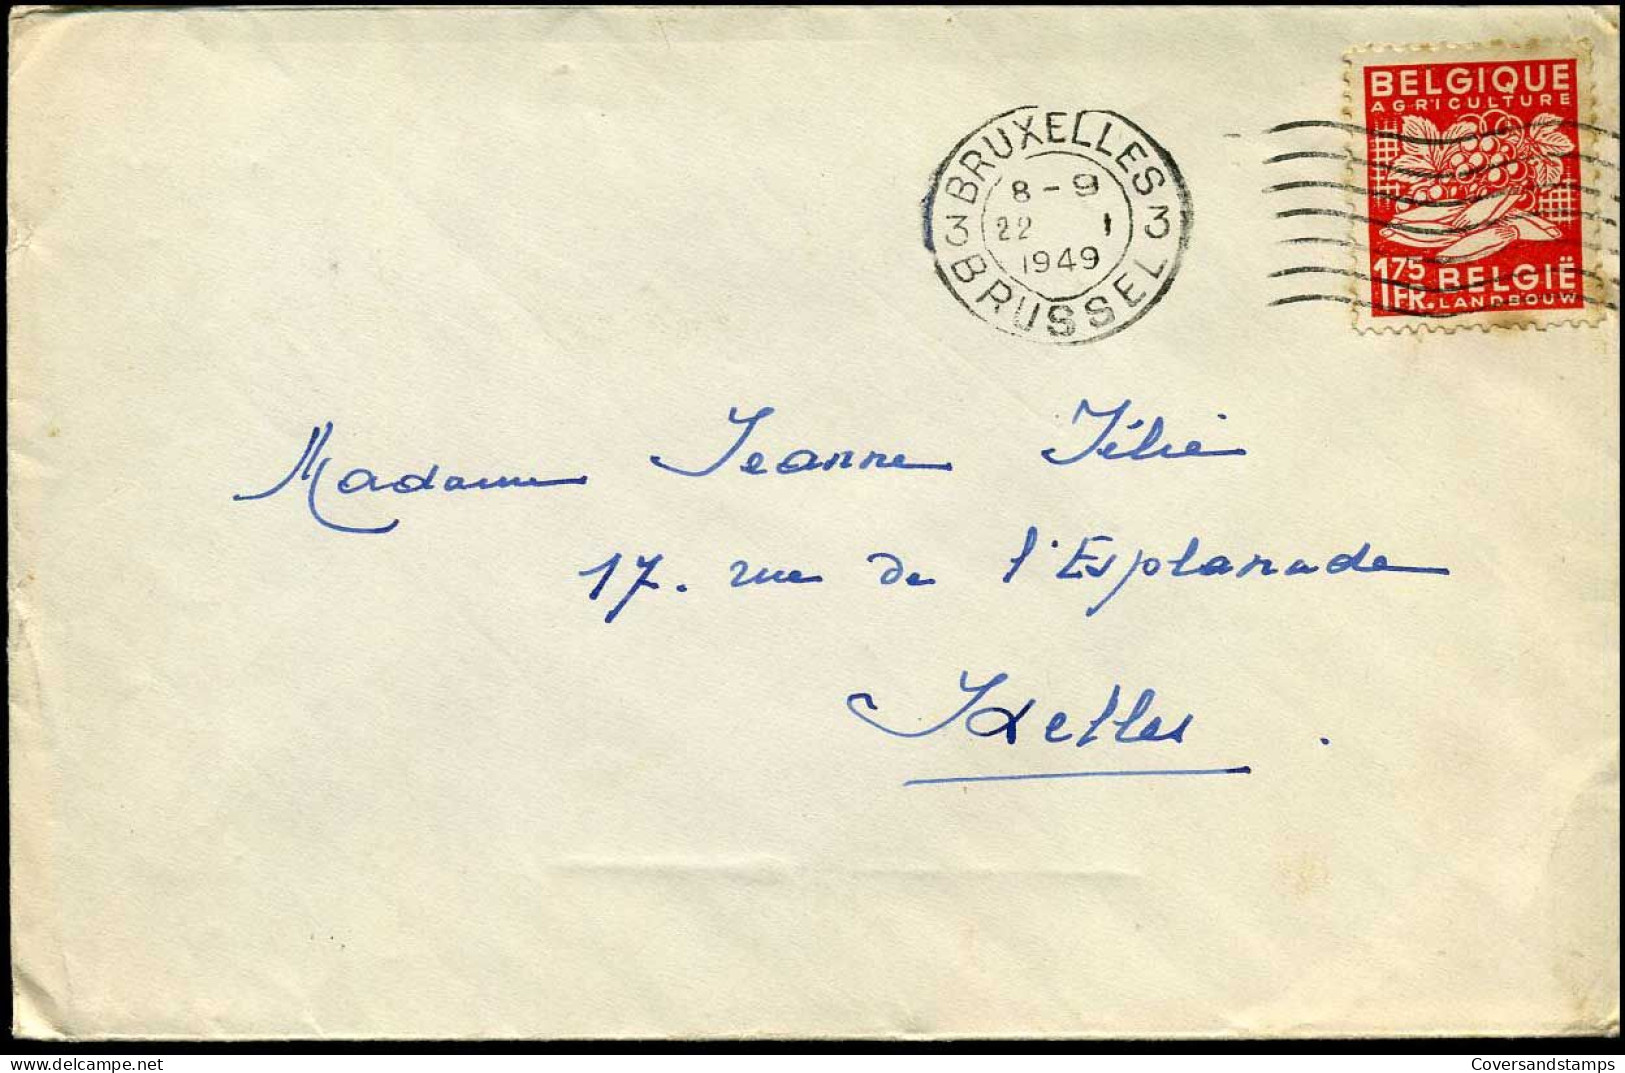 BELGIQUE
AGRICULTURE
1 75
1 FR. BELGIË
LANDBOUW
3 BRUXELLES 3
8 - 9
22 1
1949
BRUSSEL
Madame Jeanne
17. rue de l'Esplanade
Ixelles.
www.delcampe.net
Coversandstamps